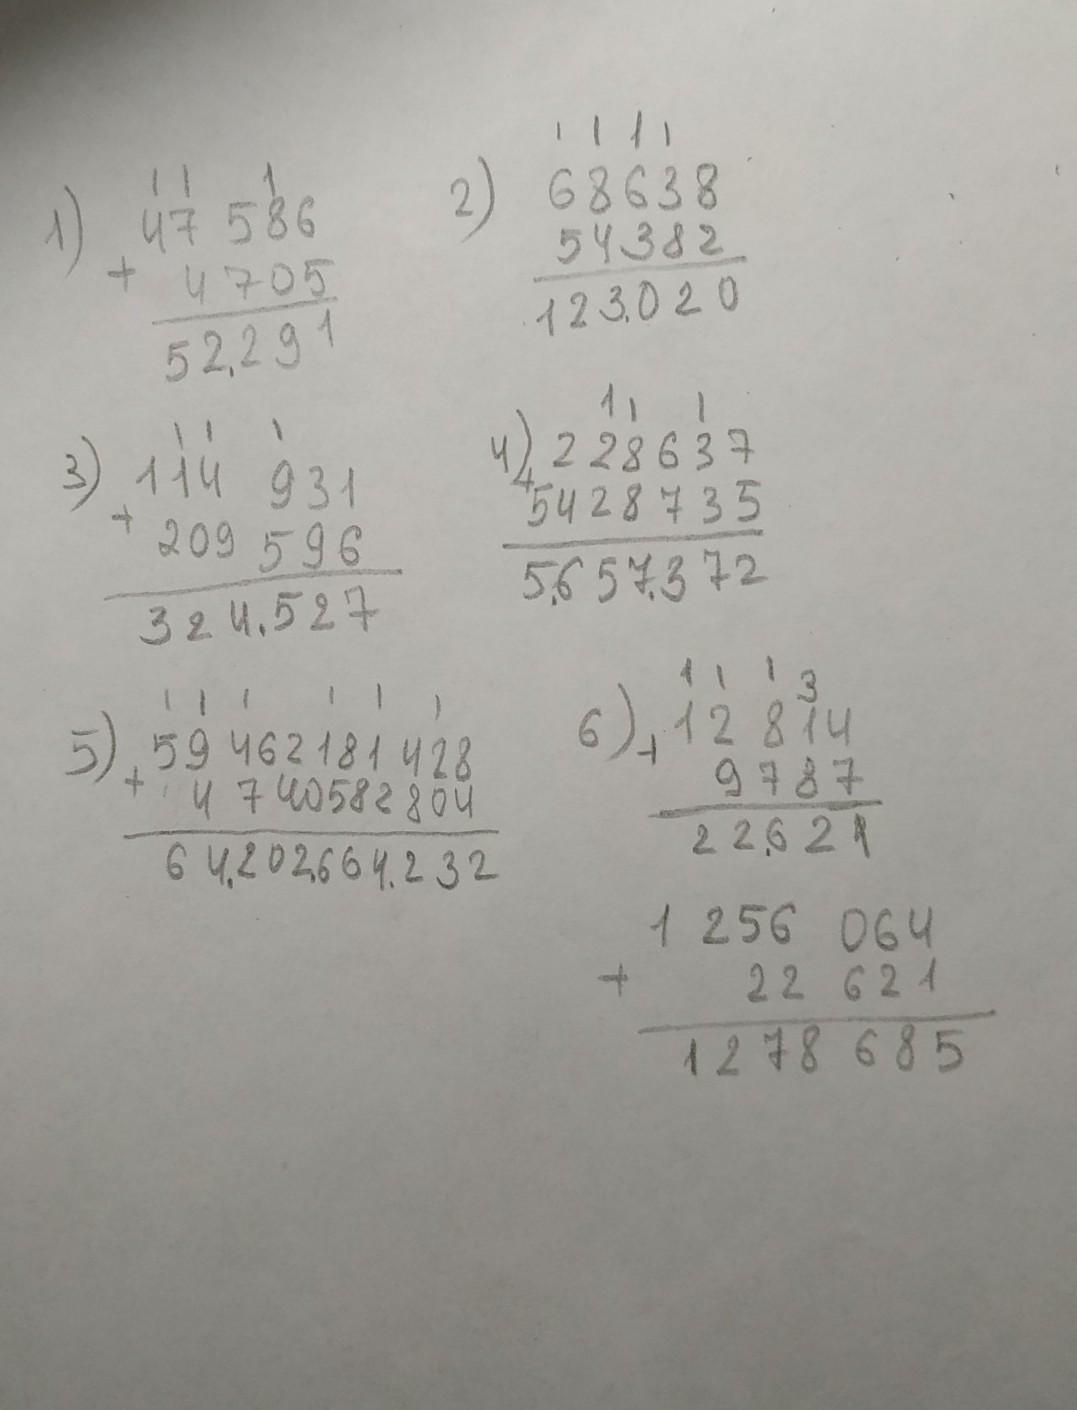 1) 1 1 1
47 586
+ 4705
52.291
2) 1 1 1 1
68638
54382
123.020
3) 1 1 1
114 931
+ 209 596
324.527
4) 1 1 1
228637
+ 5428735
5.657.372
5) 1 1 1 1 1 1
59 462181 428
+ 4 740582804
64.202.664.232
6) 1 1 1 3
12 814
+ 9787
22.621
1 256 064
+ 22 621
1278 685